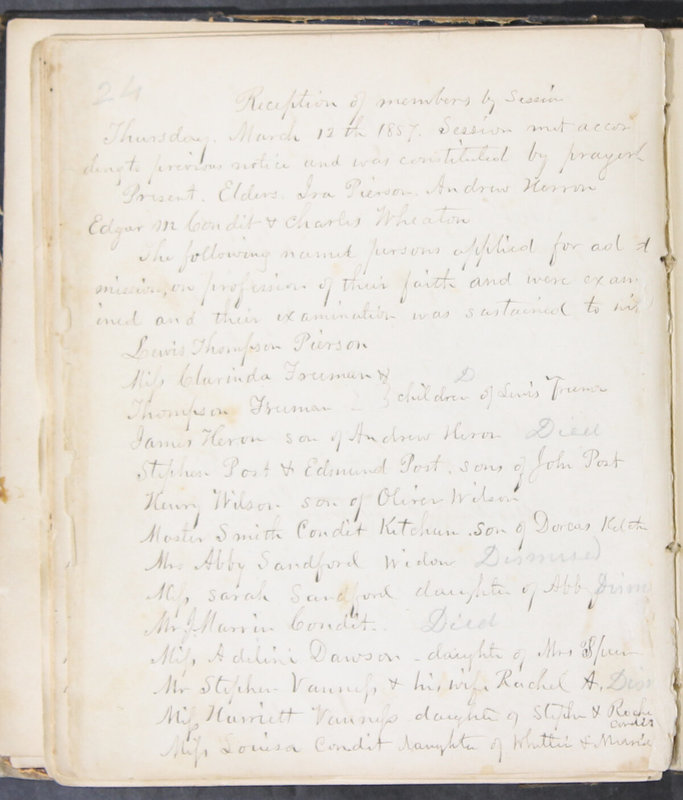 24
Reception of members by Session
Thursday. March 12th 1857. Session met accor
ding to previous notice and was constituted by prayer
Present. Elders. Ira Pierson. Andrew Herron
Edgar M Condit & Charles Wheaton
The following named persons applied for ad
mission, on profession of their faith and were exam
ined and their examination was sustained to wit
Lewis Thompson Pierson
Miss Clarinda Freeman & D
Thompson Freeman } children of Lewis Freeman
James Heron son of Andrew Heron Died
Stephen Post & Edmund Post. sons of John Post
Henry Wilson son of Oliver Wilson
Master Smith Condit Ketchum son of Dorcas Ketch
Mrs Abby Sandford Widow Dismissed
Miss Sarah Sandford daughter of Abb Dism
Mr J. Marvin Condit. Died
Miss Adeline Dawson - daughter of Mrs
Mr Stephen Vanness & his wife Rachel A. Dism
Miss Harriett Vanness daughter of Stephn & Rache
Condit
Miss Louisa Condit daughter of &